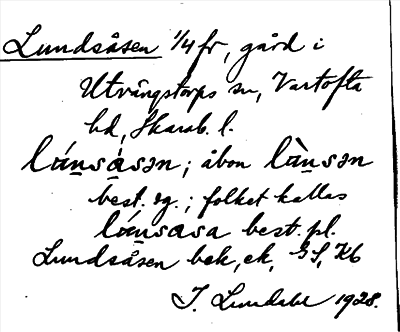 Lundsåsen 1/4 fr, gård i
Utvängstorps sn, Vartofta
hd, Skarab. l.
lánsàsən; åbon lànsən
best. sg.; folket kallas
lánsasa best. pl.
Lundsåsen bek, ek, GS, Kb
J. Lundahl 1928.